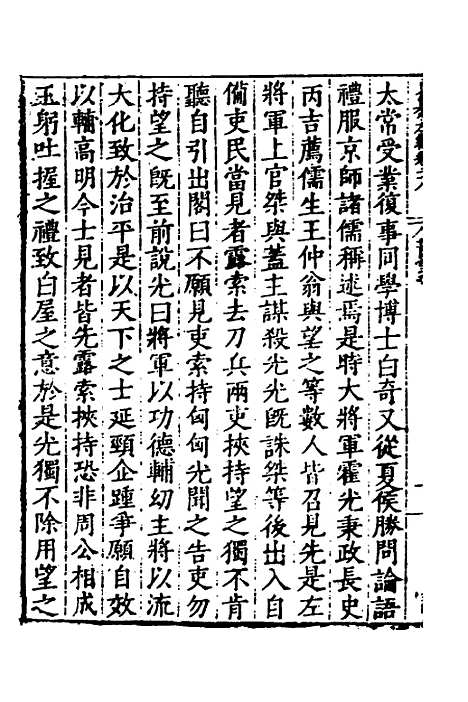 太常受業復事同學博士白奇又從夏侯勝問論語
禮服京師諸儒稱述焉是時大將軍霍光秉政長史
丙吉薦儒生王仲翁與望之等數人皆召見先是左
將軍上官桀與蓋主謀殺光光旣誅桀等後出入自
僃吏民當見者露索去刀兵兩吏挾持望之獨不肯
聽自引出閤曰不願見吏索持匈匈光聞之告吏勿
持望之旣至前說光曰將軍以功德輔幼主將以流
大化致於治平是以天下之士延頸企踵爭願自效
以輔高明今士見者皆先露索挾持恐非周公相成
王躬吐握之禮致白屋之意於是光獨不除用望之